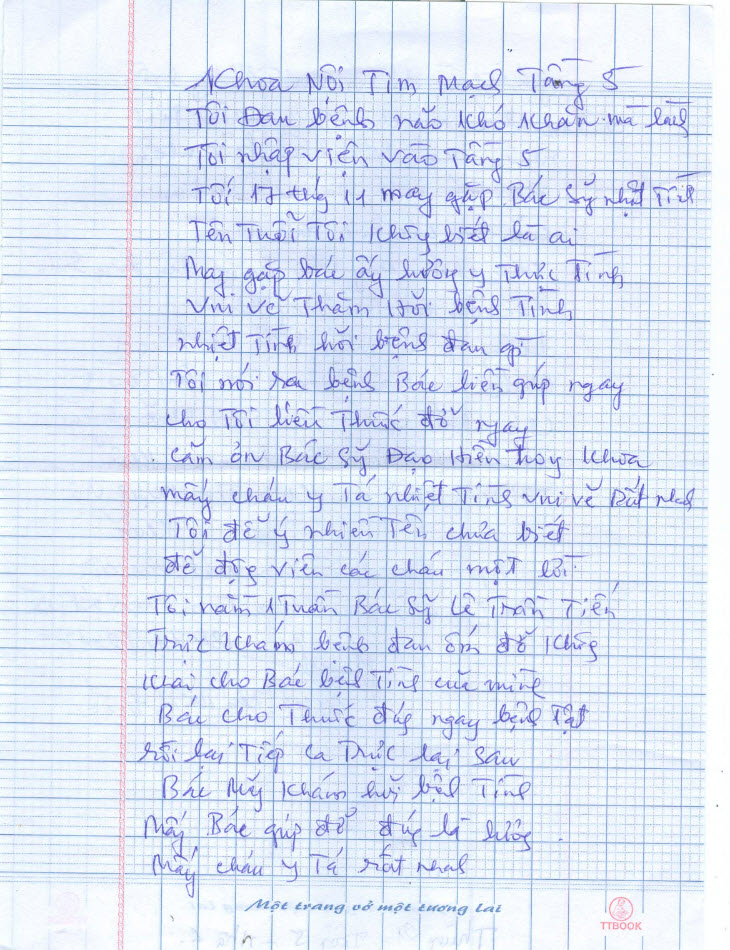 Khoa Nội Tim mạch Tầng 5
Tôi Đau bệnh nào khó khăn mà lành
Tôi nhập viện vào Tầng 5
Tối 17 thg 11 may gặp Bác Sỹ nhiệt Tình
Tên Tuổi Tôi không biết là ai
May gặp bác ấy lương y Thức Tỉnh
Vui vẽ Thăm Hỏi bệnh Tình
nhiệt Tình hỏi bệnh đau gì
Tôi nói ra bệnh Bác liền giúp ngay
cho Tôi liều Thuốc đỡ ngay
cảm ơn Bác Sỹ Đạo Hiền khoa
mấy cháu y Tá nhiệt Tình vui vẽ Rất nhanh
Tôi để ý nhiên Tên chưa biết
để động viên các cháu một lời
Tôi nằm 1 Tuần Bác Sỹ Lê Trần Tiến
Trực khám bệnh đau ốm đỡ không
khai cho Bác bệnh Tình của mình
Bác cho Thuốc đúng ngay bệnh Tật
rồi lại Tiếp ca Trực lại sau
Bác Mỹ khám hỏi bệnh Tình
Mấy Bác giúp đỡ đúng là lương
Mấy cháu y Tá rất nhanh
Một trang vở một tương lai
TTBOOK